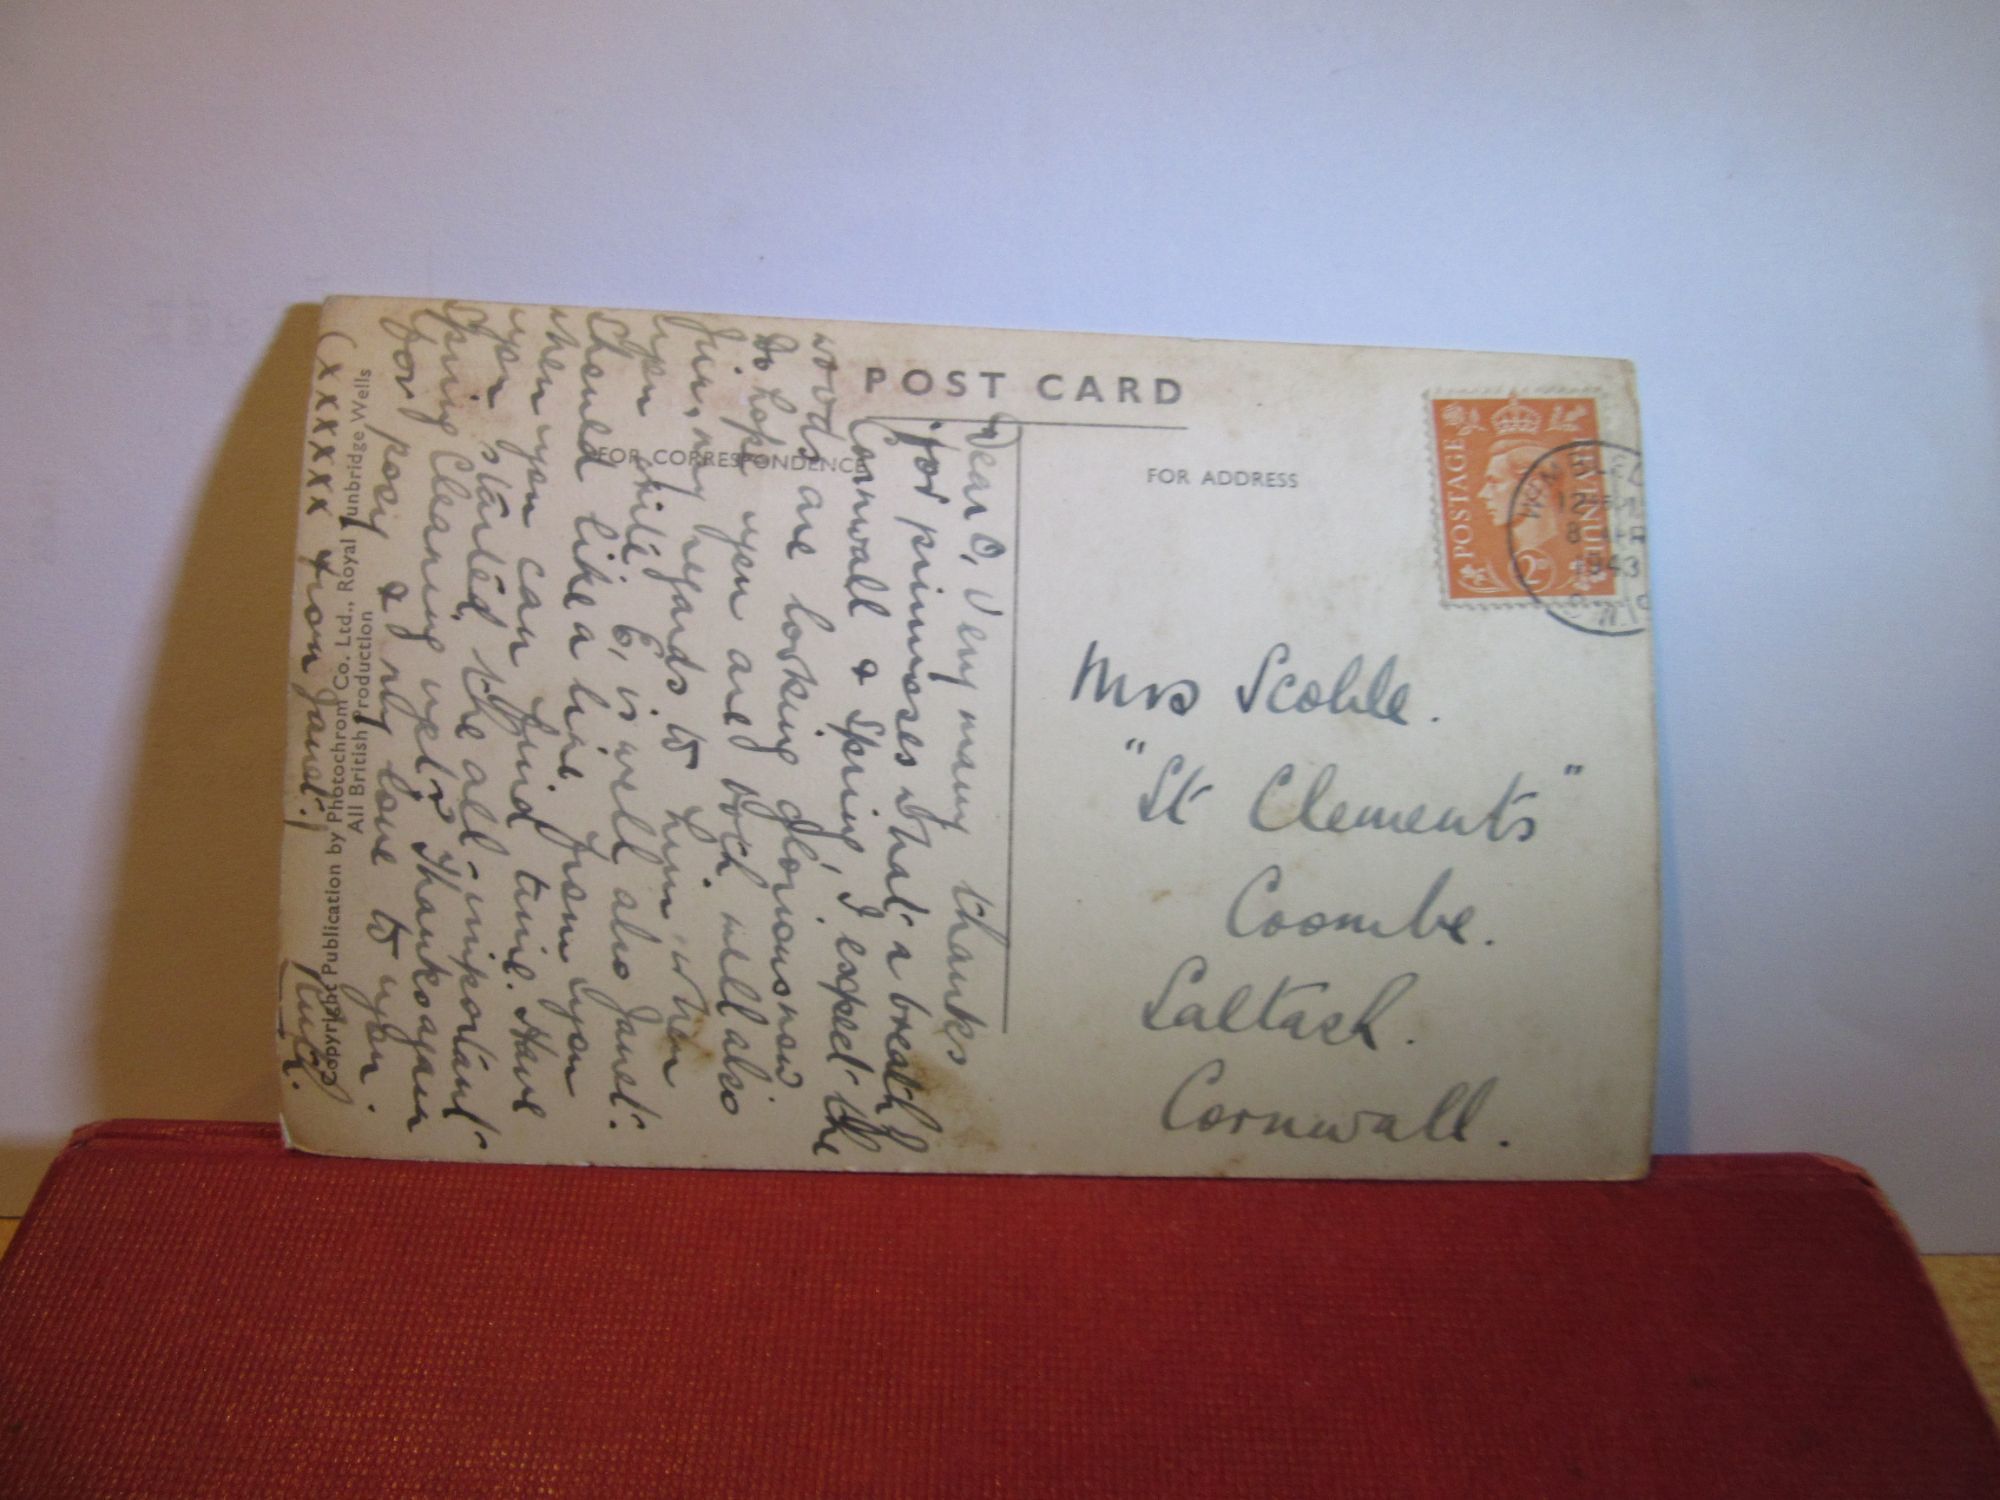 POST CARD
FOR CORRESPONDENCE
FOR ADDRESS
POSTAGE REVENUE
2D
12
8
1943
Mrs Scoble.
"St Clements"
Coombe.
Saltash.
Cornwall.
Dear O, Very many thanks
for primroses what a breath of
Cornwall & Spring, I expect the
woods are looking glorious now.
Do hope you are both well also
Jim, my regards to him when
you write. E, is well also Janet.
Should like a line from you
when you can find time. Have
you started the all-important
Spring Cleaning yet? Thank again
for posy & my love to you.
Ruth.
(x x x x x x from Janet.)
Copyright Publication by Photochrom Co. Ltd., Royal Tunbridge Wells
All British Production